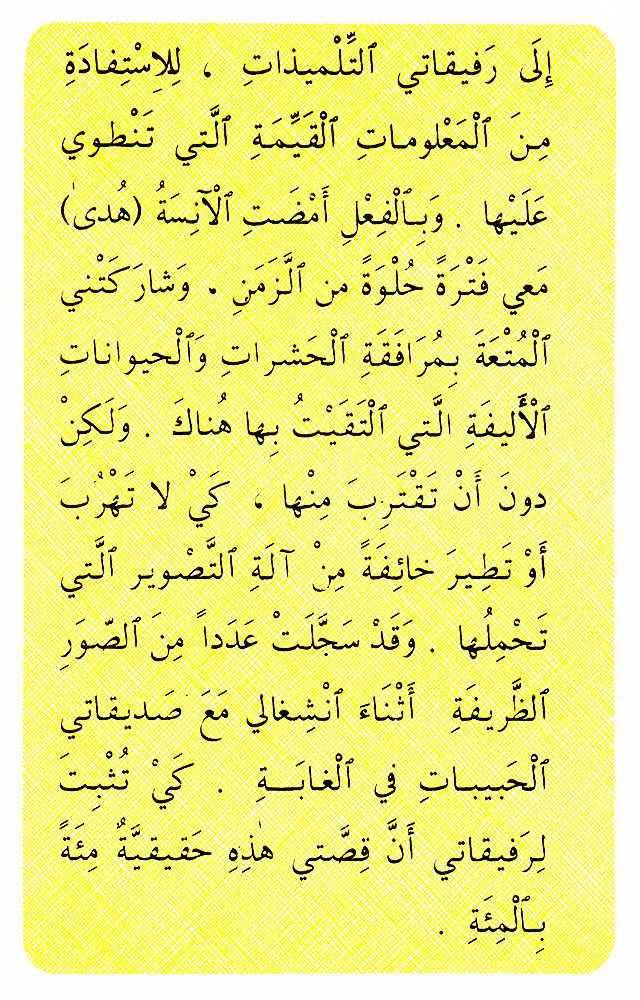 إِلَى رَفيقاتي ٱلتِّلْميذاتِ ، لِلاِسْتِفادَةِ
مِنَ ٱلْمَعْلوماتِ ٱلْقَيِّمَةِ ٱلَّتي تَنْطوي
عَلَيْها . وَبِٱلْفِعْلِ أَمْضَتِ ٱلْآنِسَةُ (هُدىٰ)
مَعي فَتْرَةً حُلْوَةً من ٱلَّزَمَنِ . وَشارَكَتْني
ٱلْمُتْعَةَ بِمُرَافَقَةِ ٱلْحَشراتِ وَٱلْحيواناتِ
ٱلْأَليفَةِ الَّتي ٱلْتَقَيْتُ بِها هُناكَ . وَلَكِنْ
دونَ أَنْ تَقْتَرِبَ مِنْها ، كَيْ لا تَهْرُبَ
أَوْ تَطِيرَ خائِفَةً مِنْ آلَةِ ٱلتَّصْويرِ ٱلَّتي
تَحْمِلُها . وَقَدْ سَجَّلَتْ عَدَداً مِنَ ٱلصّوَرِ
ٱلظَّريفَةِ أَثْنَاءَ ٱنْشِغالي مَعَ صَديقاتي
ٱلْحَبيباتِ في ٱلْغابَـــةِ . كَيْ تُثْبِتَ
لِرَفيقاتي أَنَّ قِصَّتي هٰذِهِ حَقيقيَّةٌ مِئَةً
بِٱلْمِئَةِ .